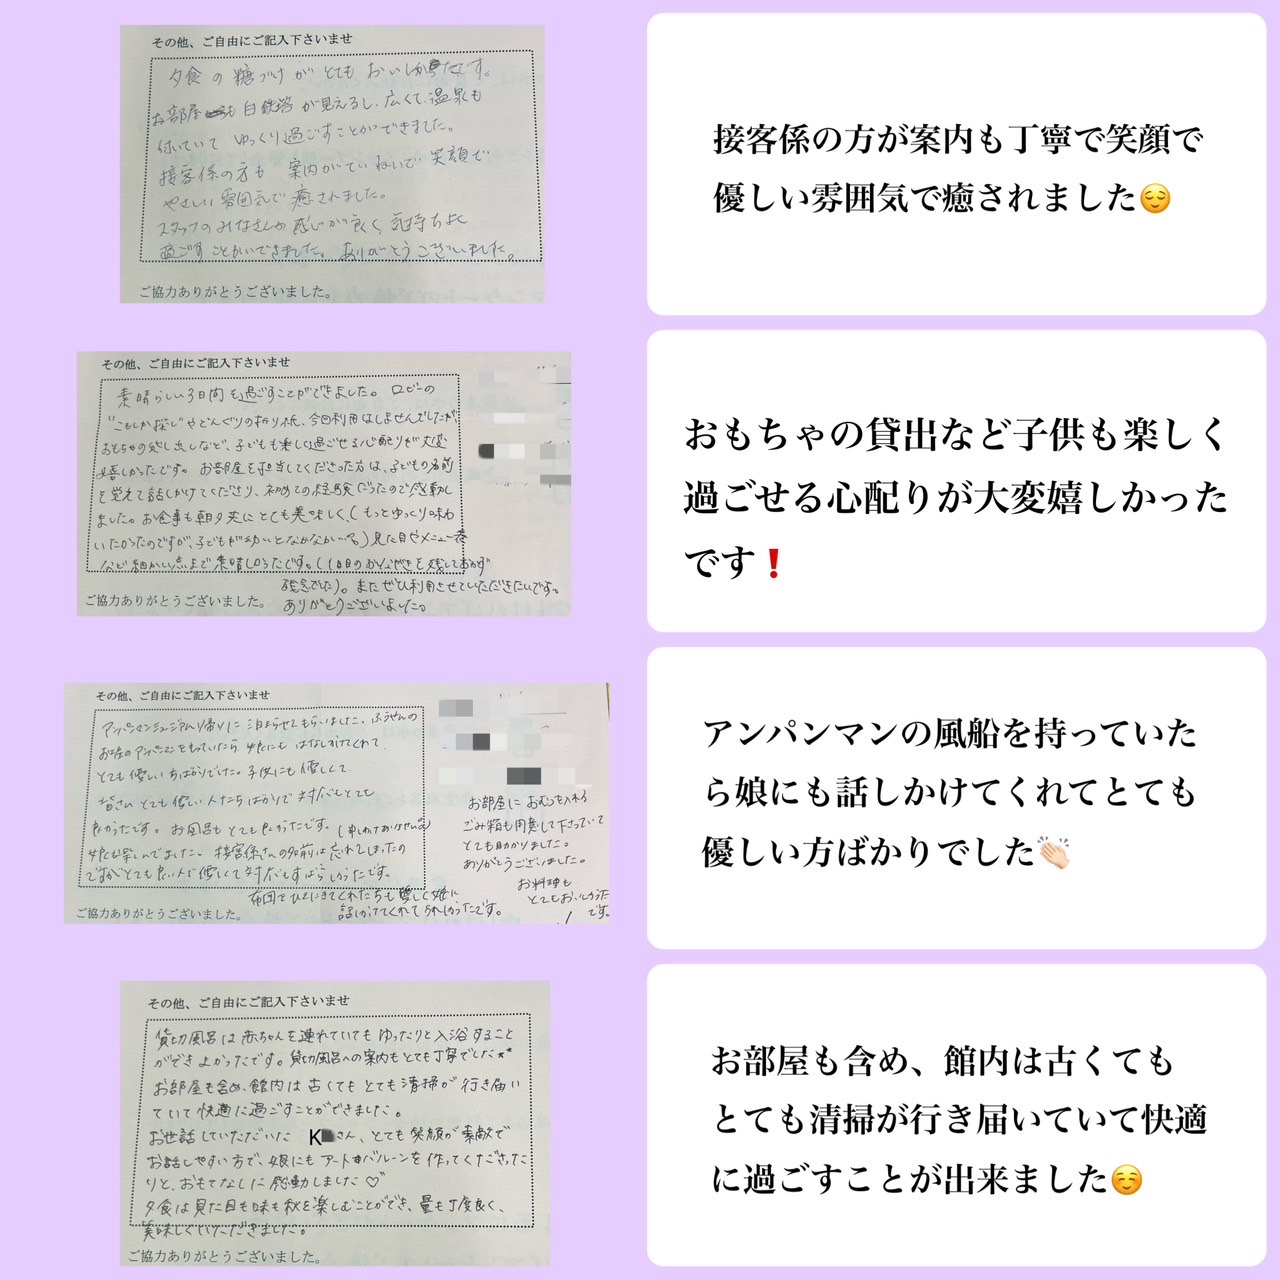 その他、ご自由にご記入下さいませ
夕食の糖づけがとてもおいしかったです。
お部屋も白鉄塔が見えるし、広くて、温泉も
付いていて ゆっくり過ごすことができました。
接客係の方も 案内がていねいで 笑顔で
やさしい雰囲気で癒されました。
スタッフのみなさんの感じが良く、気持ちよく
過ごすことができました。ありがとうございました。
ご協力ありがとうございました。
接客係の方が案内も丁寧で笑顔で
優しい雰囲気で癒されました😌
その他、ご自由にご記入下さいませ
素晴らしい3日間を過ごすことができました。ロビーの
やどんぐりの折り紙、今回利用はしませんでしたが、
おもちゃの貸し出しなど、子どもも楽しく過ごせる心配りが大変
嬉しかったです。お部屋を担当してくださった方は、子どもの名前
を覚えて話しかけてくださり、初めての経験だったので感動し
ました。お食事も朝夕共にとても美味しく、(もっとゆっくり味わ
いたかったのですが、子どもが幼いとなかなか…)見た目やメニュー表
など細かい点まで素晴しかったです。(1日目の
残念でした)。またぜひ利用させていただきたいです。
ご協力ありがとうございました。
ありがとうございました。
おもちゃの貸出など子供も楽しく
過ごせる心配りが大変嬉しかった
です❗
その他、ご自由にご記入下さいませ
アンパンマンミュージアム帰りに泊まらせてもらいました。ふうせんの
アンパンマンをもっていたら 娘にもはなしかけてくれて
とても優しい方ばかりでした。子供にも優しくて
皆さんとても優しい人たちばかりで 対応もとても
良かったです。お風呂もとても良かったです。
娘も楽しんでました。接客係さんの名前は忘れてしまったの
ですがとても良い人で優しくて対応もすばらしかったです。
布団をひきにきてくれた方も優しく娘に
話しかけてくれてうれしかったです。
お部屋におむつを入れる
ごみ箱も用意して下さっていて
とても助かりました。
ありがとうございました。
お料理も
とてもおいしかった
です。
ご協力ありがとうございました。
アンパンマンの風船を持っていた
ら娘にも話しかけてくれてとても
優しい方ばかりでした👏🏻
その他、ご自由にご記入下さいませ
貸切風呂は赤ちゃんを連れていてもゆったりと入浴すること
ができよかったです。貸切風呂への案内もとても丁寧でした**
お部屋も含め、館内は古くてもとても清掃が行き届い
ていて快適に過ごすことができました。
お世話していただいた K さん、とても笑顔が素敵で
お話しやすい方で、娘にもアートバルーンを作ってくださった
りと、おもてなしに感動しました♡
夕食は見た目も味も秋を楽しむことができ、量も丁度良く、
美味しくいただきました。
ご協力ありがとうございました。
お部屋も含め、館内は古くても
とても清掃が行き届いていて快適
に過ごすことが出来ました☺️